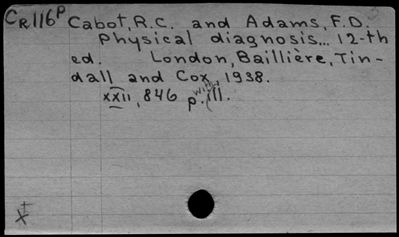 CR116P Cabot, R.C. and Adams, F.D.
Physical diagnosis... 12-th
ed. London, Baillière, Tin-
dall and Cox, 1938.
xxii, 846 p. with ill.